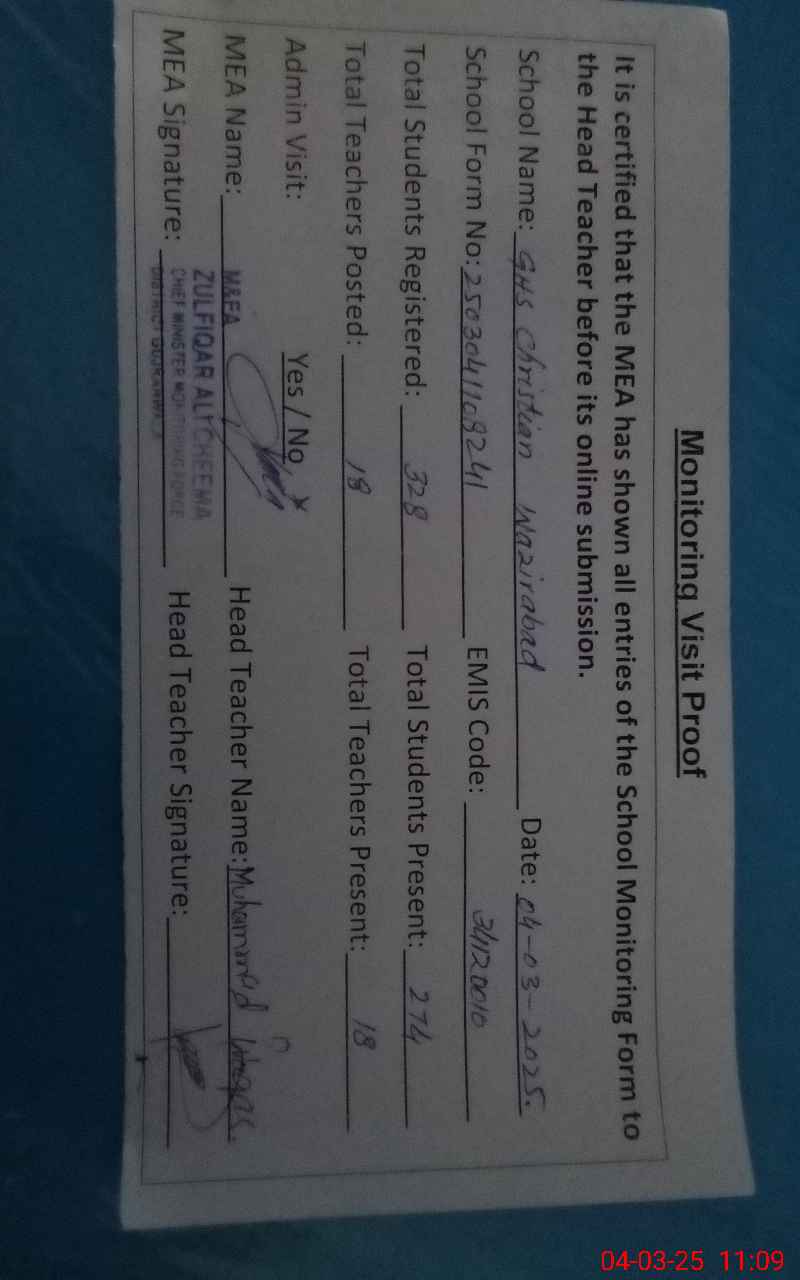 Monitoring Visit Proof
It is certified that the MEA has shown all entries of the School Monitoring Form to
the Head Teacher before its online submission.
School Name: GHS Christian Wazirabad Date: 04-03-2025.
School Form No: 2503041108241 EMIS Code: 34120010
Total Students Registered: 328 Total Students Present: 274
Total Teachers Posted: 18 Total Teachers Present: 18
Admin Visit: Yes / No
MEA Name: Head Teacher Name: Muhammad Waqas.
M&EA
ZULFIQAR ALI CHEEMA
CHIEF MINISTER MONITORING FORCE
DISTRICT GUJRANWALA
MEA Signature: Head Teacher Signature:
04-03-25 11:09